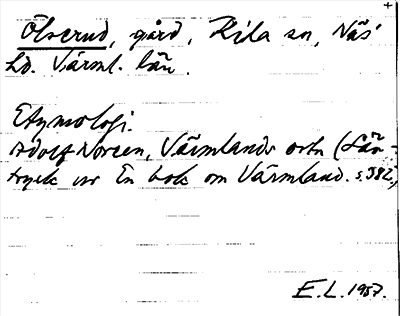 Ölserud, gård, Kila sn, Näs
hd. Värml. län.
Etymologi.
Adolf Noreen, Värmlands ortn (Sär-
tryck ur En bok om Värmland. s. 382)
E.L. 1957.